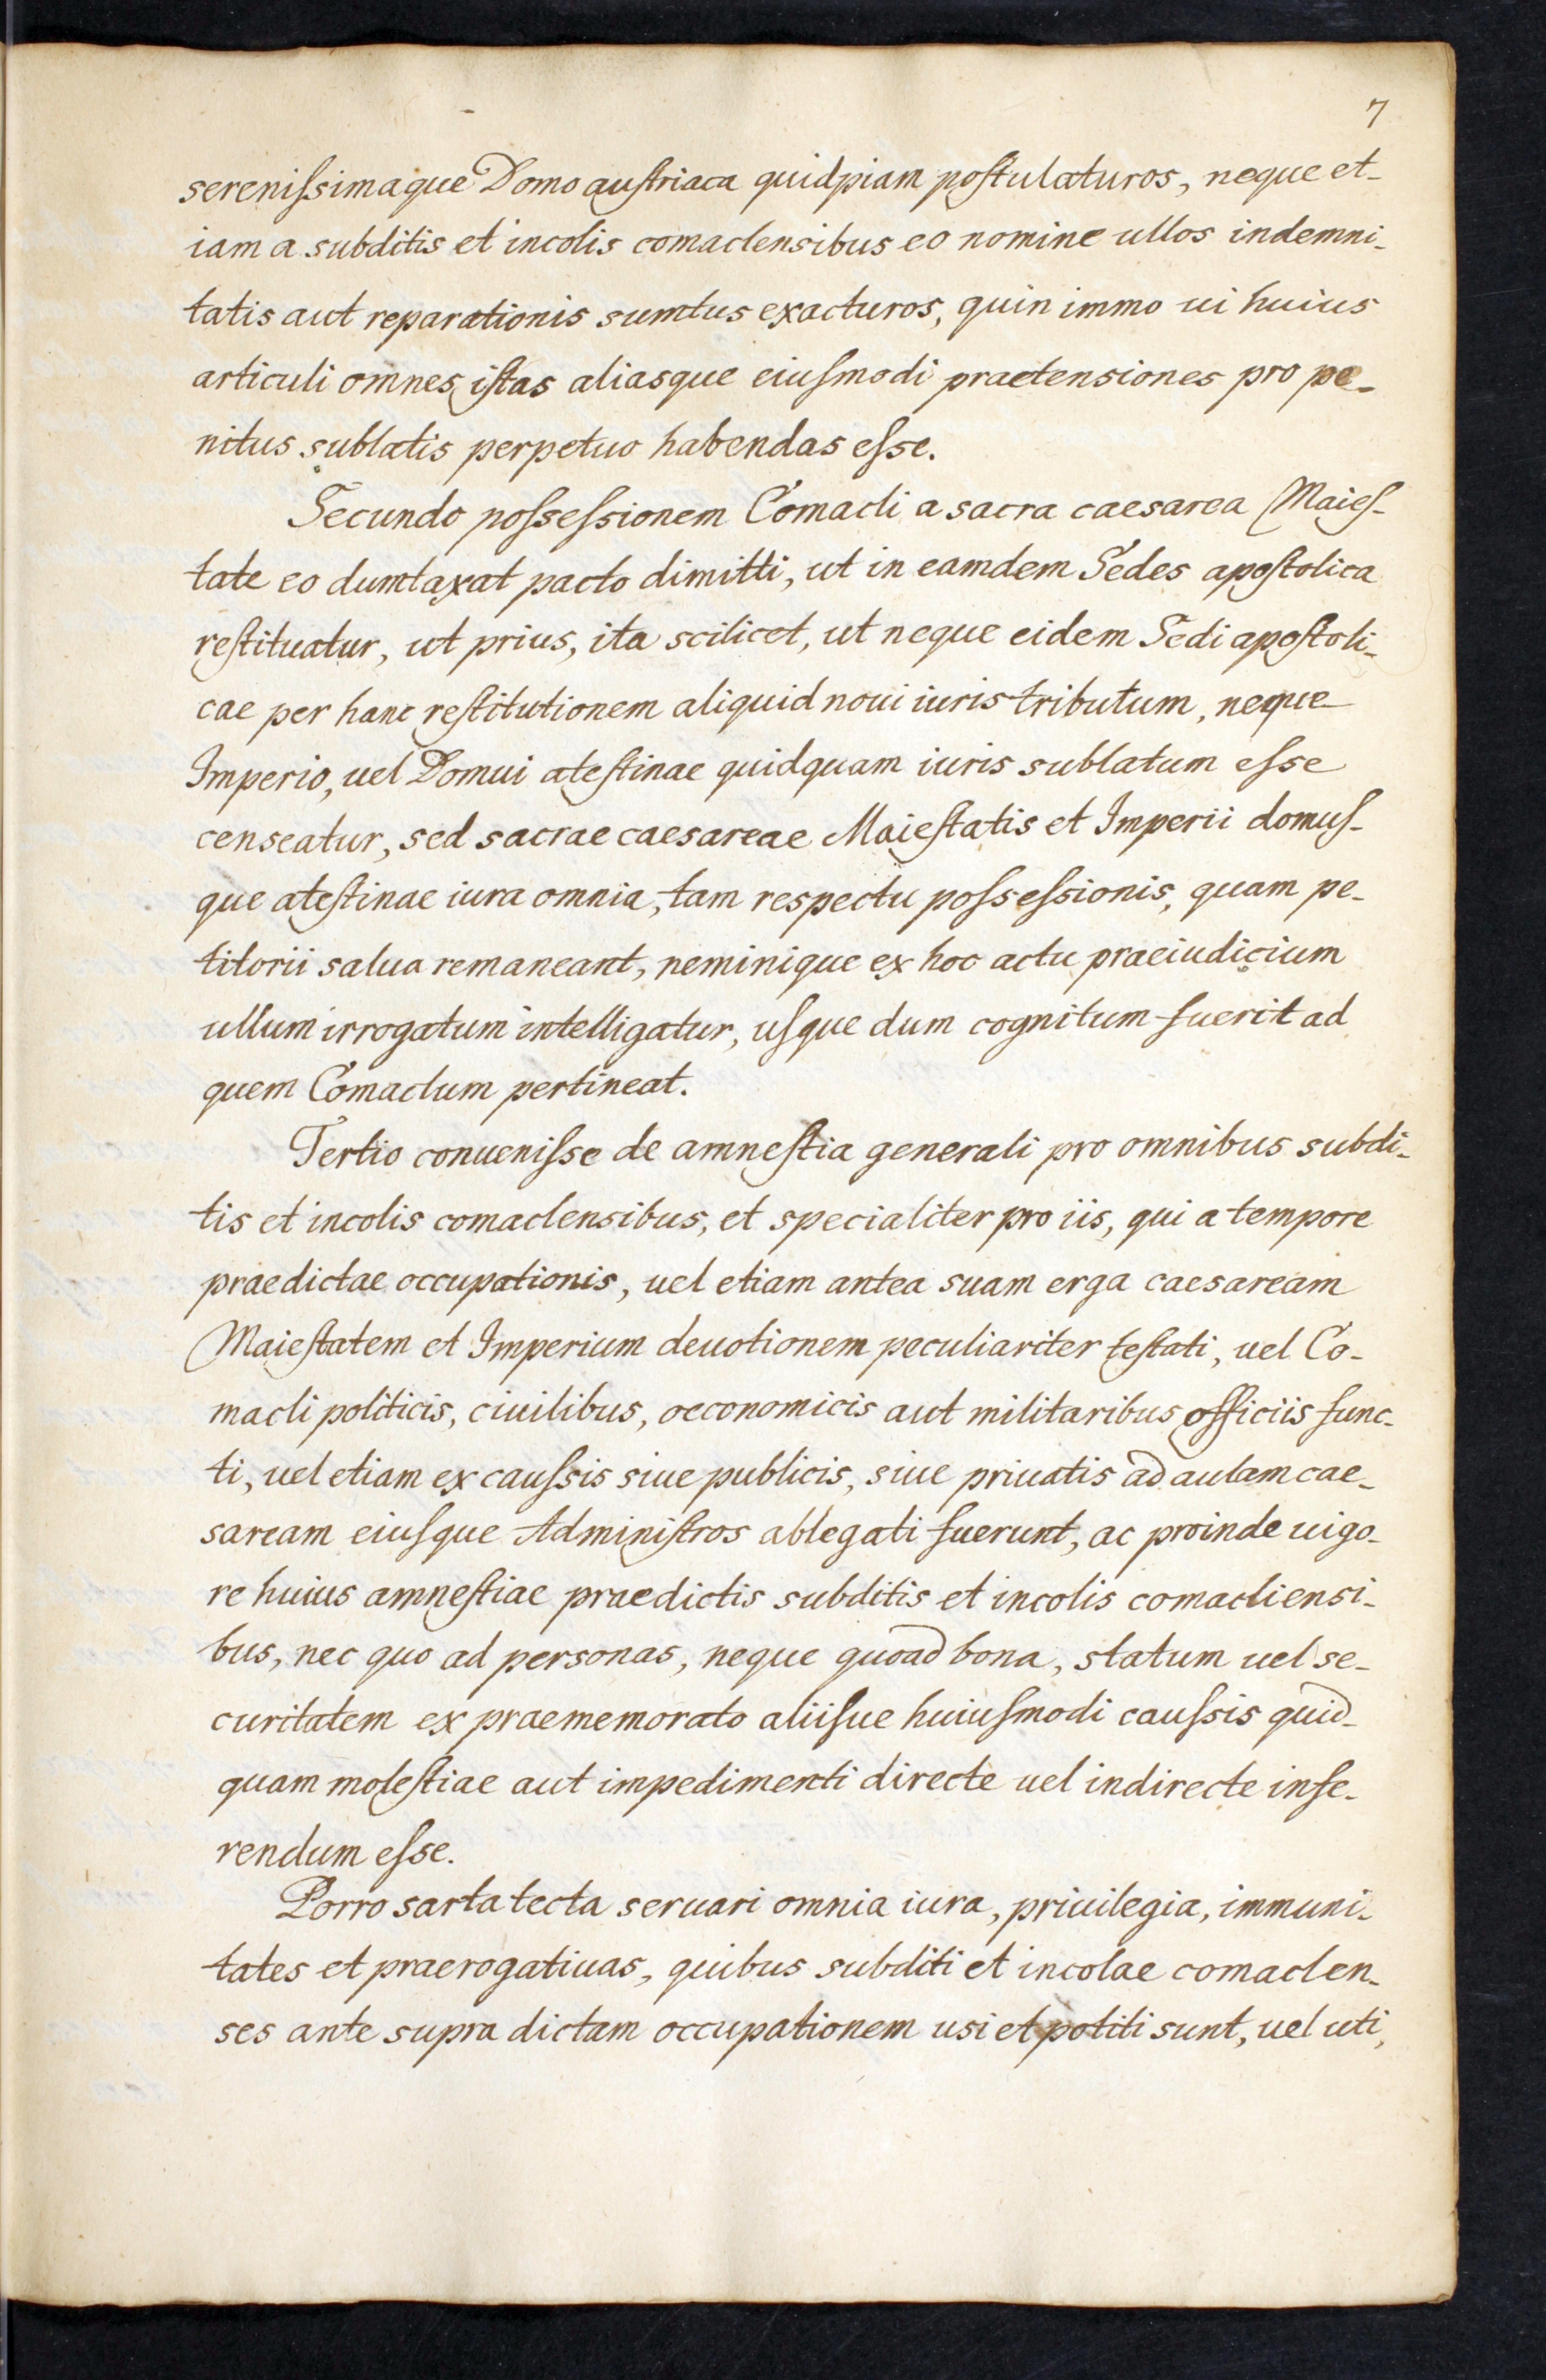 7
serenissimaque Domo austriaca quidpiam postulaturos, neque et-
iam a subditis et incolis comaclensibus eo nomine ullos indemni-
tatis aut reparationis sumtus exacturos, quin immo ui huius
articuli omnes istas aliasque eiusmodi praetensiones pro pe-
nitus sublatis perpetuo habendas esse.
Secundo possessionem Comacli a sacra caesarea Maies-
tate eo dumtaxat pacto dimitti, ut in eamdem Sedes apostolica
restituatur, ut prius, ita scilicet, ut neque eidem Sedi apostoli-
cae per hanc restitutionem aliquid noui iuris tributum, neque
Imperio, uel Domui atestinae quidquam iuris sublatum esse
censeatur, sed sacrae caesareae Maiestatis et Imperii domus-
que atestinae iura omnia, tam respectu possessionis, quam pe-
titorii salua remaneant, neminique ex hoc actu praeiudicium
ullum irrogatum intelligatur, usque dum cognitum fuerit ad
quem Comaclum pertineat.
Tertio conuenisse de amnestia generali pro omnibus subdi-
tis et incolis comaclensibus, et specialiter pro iis, qui a tempore
praedictae occupationis, uel etiam antea suam erga caesaream
Maiestatem et Imperium deuotionem peculiariter testati, uel Co-
macli politicis, ciuilibus, oeconomicis aut militaribus officiis func-
ti, uel etiam ex caussis siue publicis, siue priuatis ad aulam cae-
saream eiusque Administros ablegati fuerunt, ac proinde uigo-
re huius amnestiae praedictis subditis et incolis comacliensi-
bus, nec quo ad personas, neque quoad bona, statum uel se-
curitatem ex praememorato aliisue huiusmodi caussis quid-
quam molestiae aut impedimenti directe uel indirecte infe-
rendum esse.
Porro sarta tecta seruari omnia iura, priuilegia, immuni-
tates et praerogatiuas, quibus subditi et incolae comaclen-
ses ante supra dictam occupationem usi et potiti sunt, uel uti,